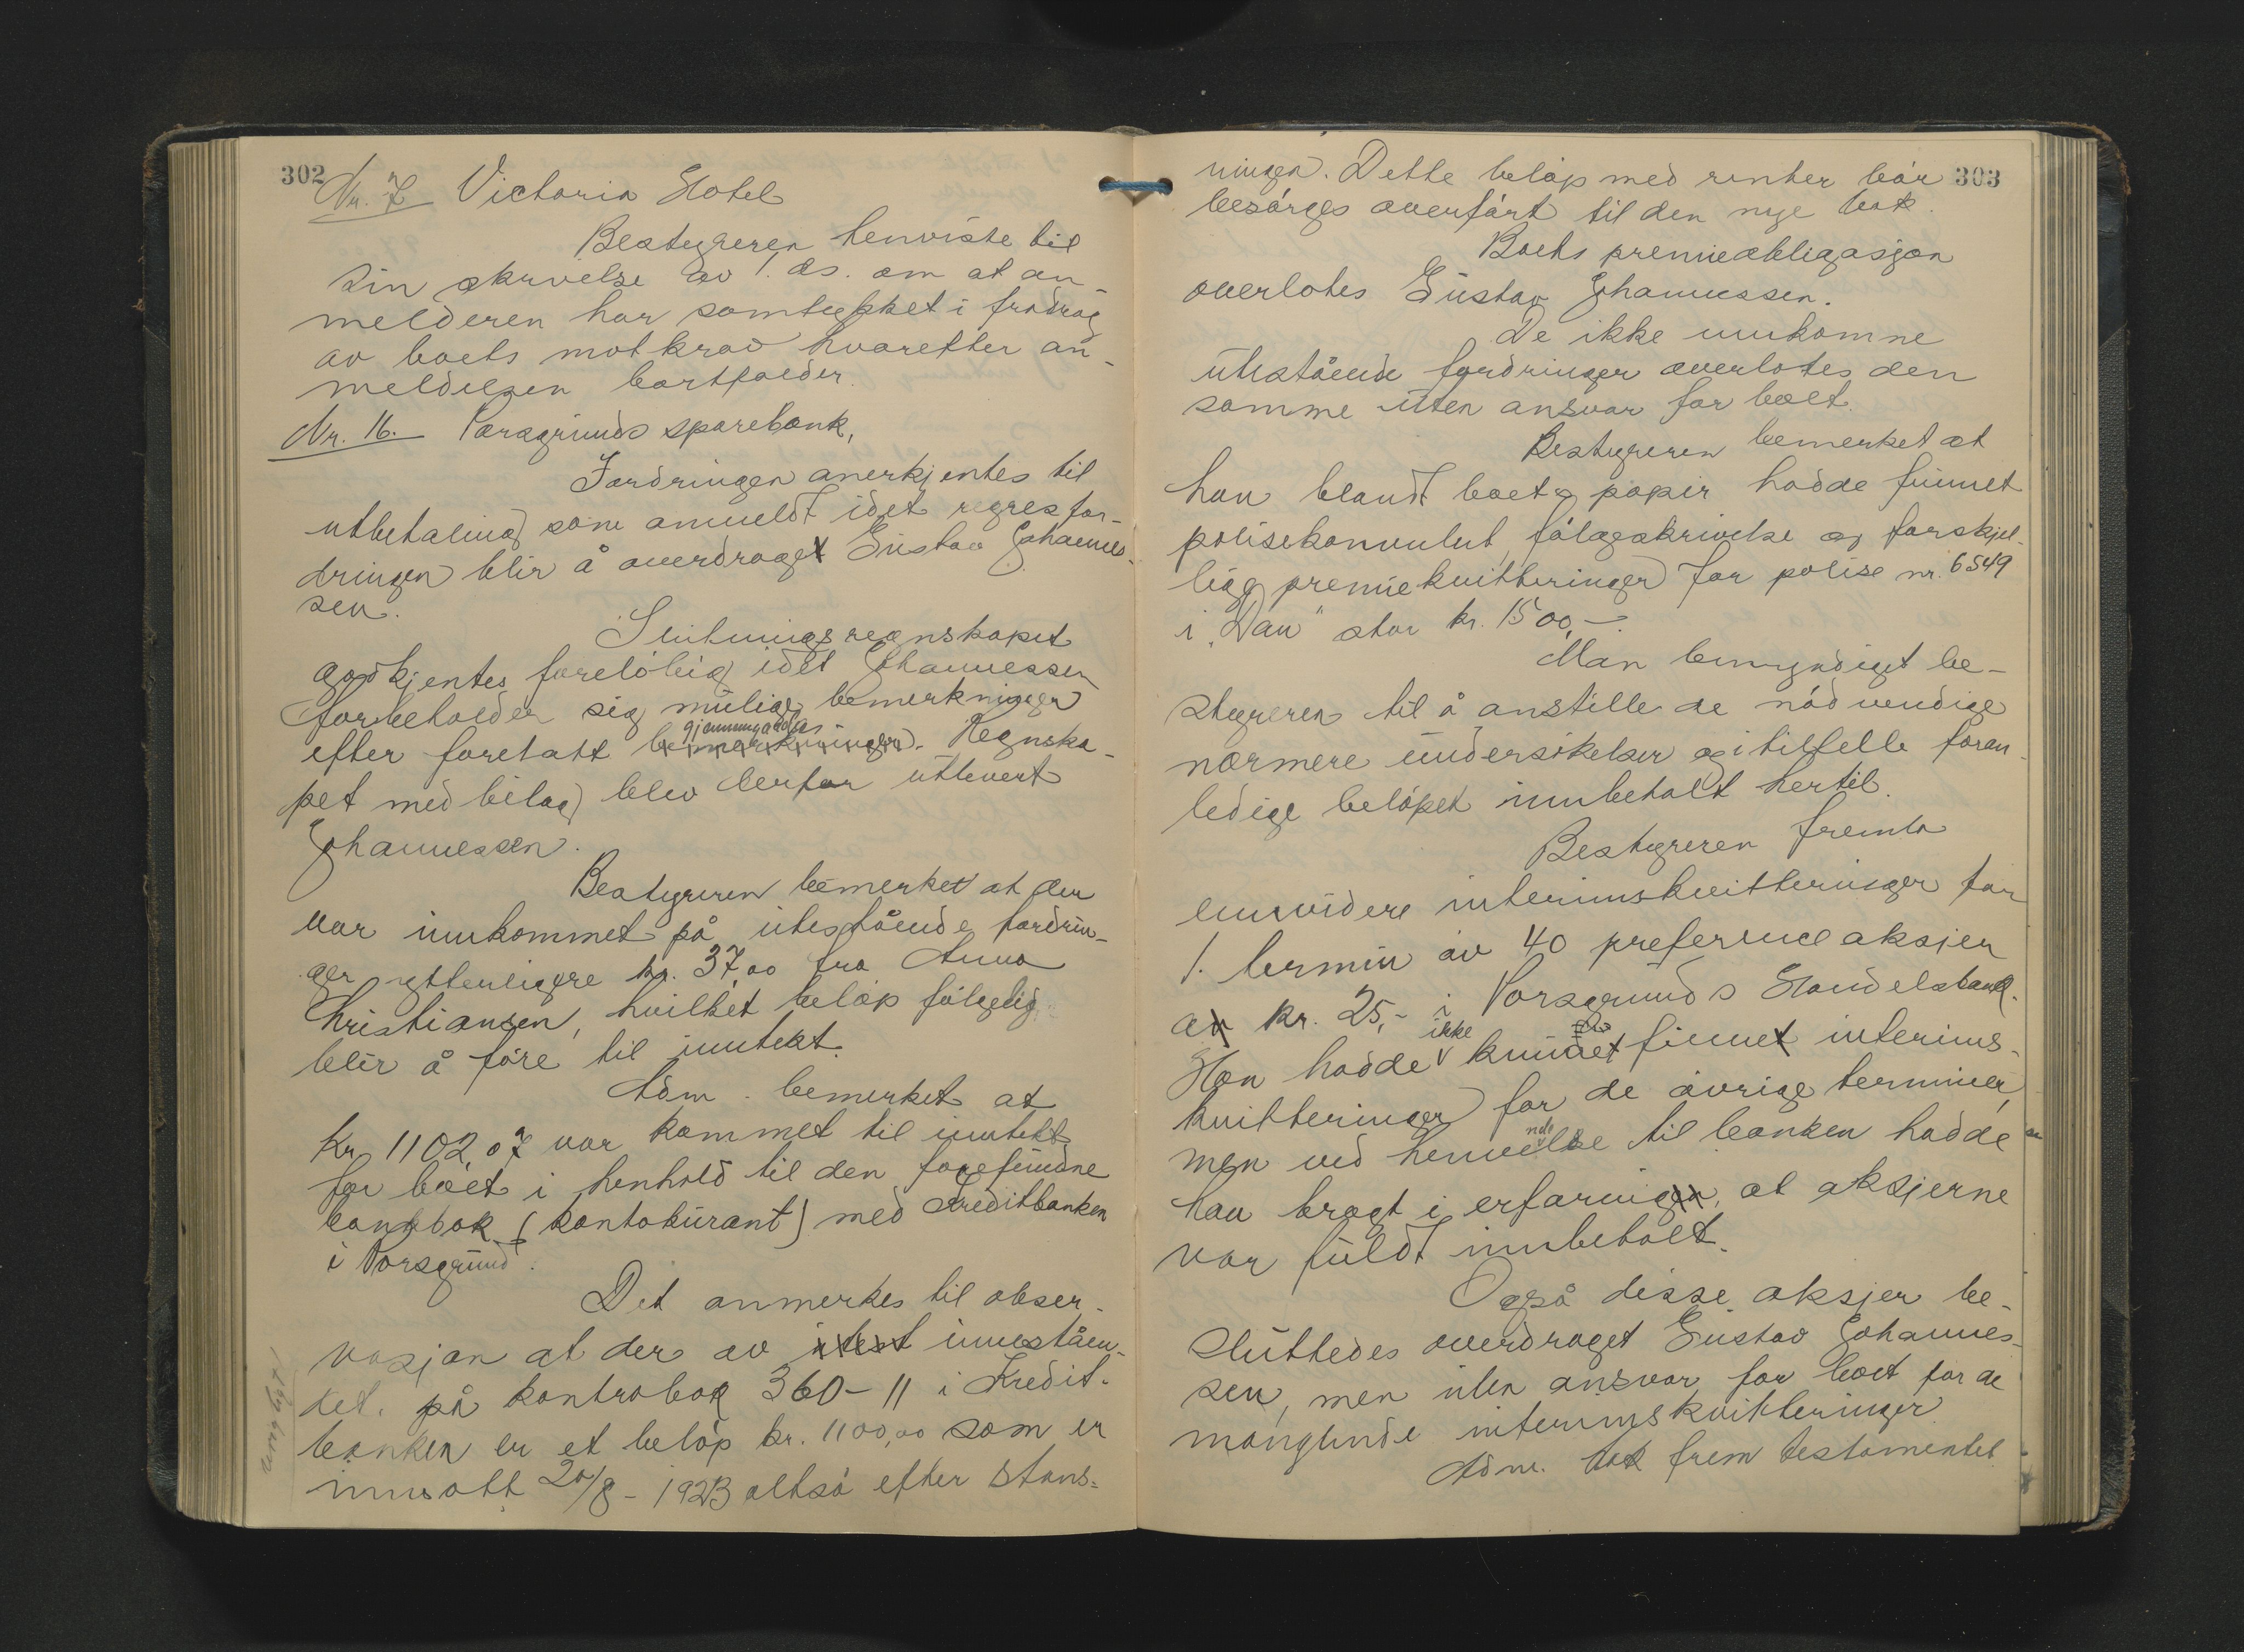 302
Nr. 7 Victoria Hotel
Bestyreren henviste til
sin skrivelse av 1. ds. om at an-
melderen har samtykket i fradrag
av boets motkrav hvorefter an-
meldelsen bortfalder.
Nr. 16. Porsgrunds sparebank,
Fordringen anerkjentes til
utbetaling som anmeldt idet regresfor-
dringen blir å overdraget Gustav Johannes-
sen.
Slutningsregnskapet
godkjentes foreløbig idet Johannessen
forbeholder sig mulige bemerkninger
gjennemgåelse
efter foretatt bemerkninger. Regnska-
pet med bilag blev derfor utlevert
Johannessen.
Bestyreren bemerket at der
var innkommet på utestående fordrin-
ger ytterligere kr. 37,00 fra Anna
Kristiansen, hvilket beløp følgelig
blir å føre til inntekt.
Adm. bemerket at
Kr. 1102,07 var kommet til inntekt
for boet i henhold til den forefundne
bankbok (kontokurant) med Kreditbanken
i Porsgrund.
Det anmerkes til obser-
vasjon at der av innståen-
det. på kontrabok 360-11 i Kredit-
banken er et beløp kr. 1100,00 som er
innsatt 20/8 - 1923 altså efter stans-
303
ningen. Dette beløp med renter bør
besørges overført til den nye bok.
Boets premieobligasjon
overlotes Gustav Johannessen.
De ikke innkomne
utestående fordringer overlotes den
samme uten ansvar for boet.
Bestyreren bemerket at
han blandt boets papir hadde funnet
polisekonvolut, følgeskrivelse og forskjel-
lige premiekvitteringer for polise nr. 6549
i "Dan" stor kr. 1500,-.
Man bemyndiget be-
styreren til å anstille de nødvendige
nærmere undersøkelser og i tilfelle foran-
ledige beløpet innbetalt hertil.
Bestyreren fremla
ennvidere interimskvitteringer for
1. termin av 40 preferenceaksjer
av kr. 25,- i Porsgrunds Handelsbank.
ikke
Han hadde kunnet funnet interims-
kvitteringer for de øvrige terminer,
nde
men ved henvendelse til banken hadde
han bragt i erfaringen, at aksjerne
var fuldt innbetalt.
Også disse aksjer be-
sluttedes overdraget Gustav Johannes-
sen, men uten ansvar for boet for de
manglende interimskvitteringer.
Adm. tok frem testamentet